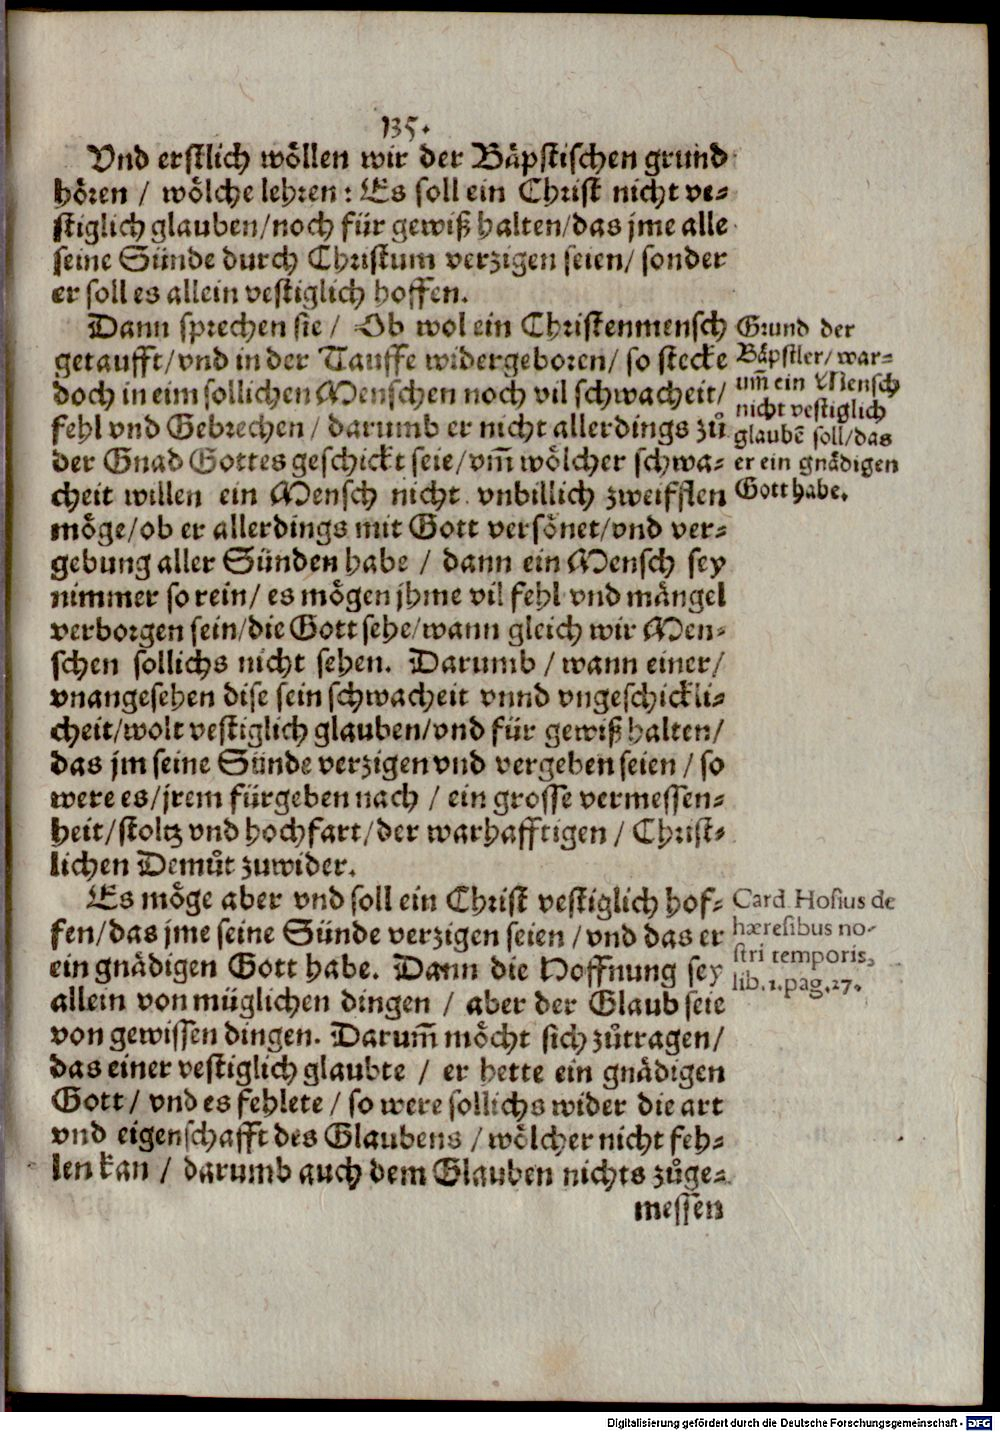 135.
Vnd erstlich wöllen wir der Bäpstischen grund
hören / wölche lehren: Es soll ein Christ nicht ve-
stiglich glauben/noch für gewiß halten/das jme alle
seine Sünde durch Christum verzigen seien/ sonder
er soll es allein vestiglich hoffen.
Dann sprechen sie / Ob wol ein Christenmensch
getaufft/vnd in der Tauffe widergeboren/ so stecke
doch in eim sollichen Menschen noch vil schwacheit/
fehl vnd Gebrechen / darumb er nicht allerdings zů
der Gnad Gottes geschickt seie/vm̃ wölcher schwa-
cheit willen ein Mensch nicht vnbillich zweifflen
möge/ob er allerdings mit Gott versönet/vnd ver-
gebung aller Sünden habe / dann ein Mensch sey
nimmer so rein/ es mögen jhme vil fehl vnd mängel
verborgen sein/die Gott sehe/wann gleich wir Men-
schen sollichs nicht sehen. Darumb / wann einer/
vnangesehen dise sein schwacheit vnnd vngeschickli-
cheit/wolt vestiglich glauben/vnd für gewiß halten/
das jm seine Sünde verzigen vnd vergeben seien / so
were es/jrem fürgeben nach / ein grosse vermessen-
heit/stoltz vnd hochfart/der warhafftigen / Christ-
lichen Demůt zuwider.
Grund der
Bäpstler/war-
um̃ ein Mensch
nicht vestiglich
glaubẽ soll/das
er ein gnädigen
Gott habe.
Es möge aber vnd soll ein Christ vestiglich hof-
fen/das jme seine Sünde verzigen seien / vnd das er
ein gnädigen Gott habe. Dann die Hoffnung sey
allein von müglichen dingen / aber der Glaub seie
von gewissen dingen. Darum̃ möcht sich zůtragen/
das einer vestiglich glaubte / er hette ein gnädigen
Gott/ vnd es fehlete / so were sollichs wider die art
vnd eigenschafft des Glaubens / wölcher nicht feh-
len kan / darumb auch dem Glauben nichts zůge-
messen
Card. Hosius de
hæresibus no-
stri temporis,
lib. 1. pag. 27.
Digitalisierung gefördert durch die Deutsche Forschungsgemeinschaft - DFG